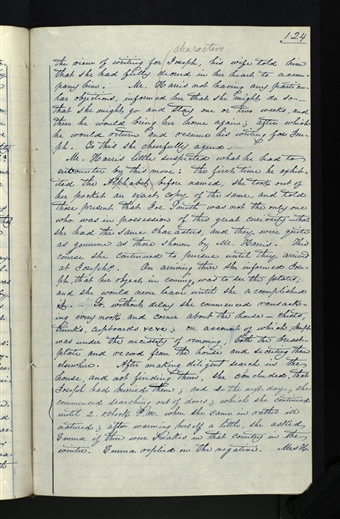 124
characters
the view of writing for Joseph, his wife told him
that she had fully decreed in her heart to accom-
pany him. Mr. Harris not having any particu-
lar objections, informed her that she might do so—
that she might go and stay one or two weeks, and
then he would bring her home again; after which
he would return and resume his writing for Jose-
ph. To this she cheerfully agreed.
Mr. Harris little suspected what he had to
encounter by this move: the first time he exhib-
ited the Alphabet, before named, she took out of
her pocket an exact copy of the same, and told
those present that Joe Smith was not the only one
who was in possession of this great curiosity— that
she had the same characters, and they were quite
as genuine as those shown by Mr. Harris. This
course she continued to pursue until they arrived
at Joseph's. On arriving there she informed Jose-
ph, that her object in coming, was to see the plates,
and she would never leave until she accomplished
it. Without delay she commenced ransack-
ing every nook and corner about the house— chests,
trunks, cupboards &c; on account of which, Joseph
was under the necessity of removing, both the breast-
plate and record from the house and secreting them
elsewhere. After making diligent search in the
house, and not finding them, she concluded, that
Joseph had buried them; and so the next day, she
commenced searching out of doors; which she continued
until 2 oclock P.M. when she came in rather ill
natured; after warming herself a little, she asked,
Emma if there were snakes in that country in the
winter. Emma replied in the negative. Mrs H.